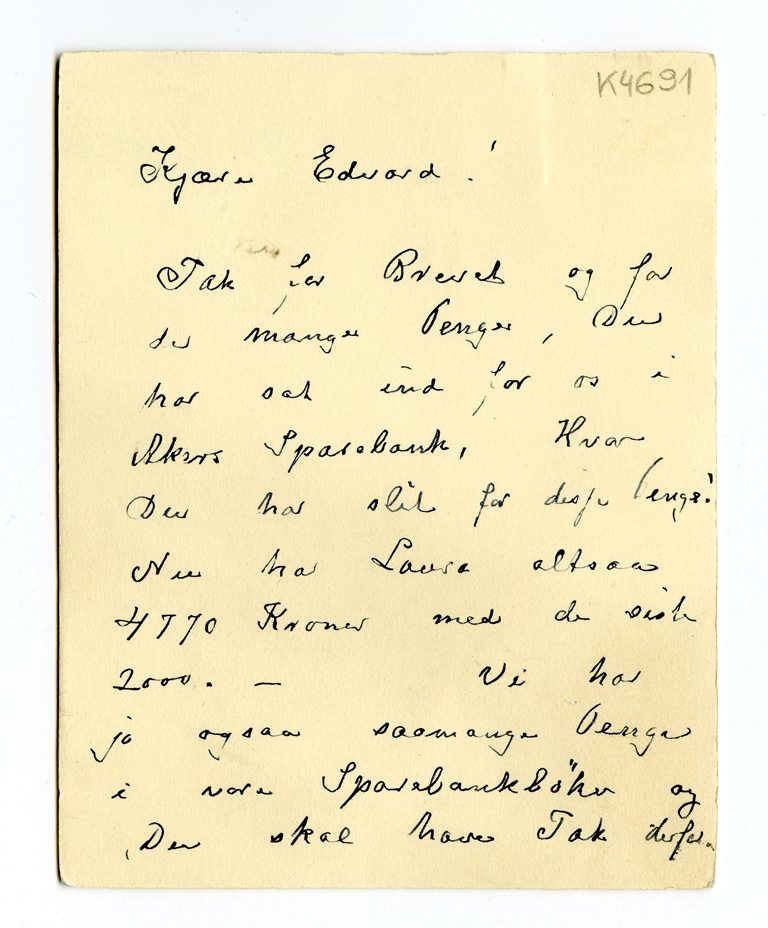 K4691
Kjære Edvard!
Tak for Brevet og for
de mange Penge, Du
har sat ind for os i
Akers Sparebank, Hvor
Du har slit for disse Penge!
Nu ha Laura altsaa
4770 Kroner med de siste
2000. —     Vi har
jo ogsaa saamange Penge
i vore Sparebankböker og
Du skal have Tak derfor.